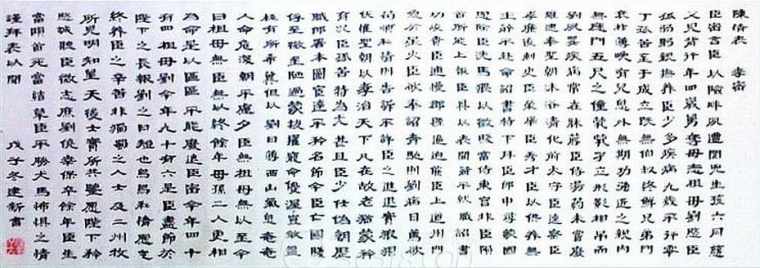 陳情表 李密
臣密言臣以險釁夙遭閔凶生孩六月慈
父見背行年四歲舅奪母志祖母劉愍臣
孤弱躬親撫養臣少多疾病九歲不行零
丁孤苦至于成立既無伯叔終鮮兄弟門
衰祚薄晚有兒息外無期功強近之親內
無應門五尺之僮煢煢孑立形影相弔而
劉夙嬰疾病常在床蓐臣侍湯藥未嘗廢
離逮奉聖朝沐浴清化前太守臣逵察臣孝
廉後刺史臣榮舉臣秀才臣以供養無
主辭不赴命詔書特下拜臣郎中尋蒙國
恩除臣洗馬猥以微賤當侍東宮非臣隕
首所能上報臣具以表聞辭不就職詔書
切峻責臣逋慢郡縣逼迫催臣上道州司臨門
急於星火臣欲奉詔奔馳則劉病日篤欲
苟順私情則告訴不許臣之進退實為狼狽
伏惟聖朝以孝治天下凡在故老猶蒙矜
育況臣孤苦特為尤甚且臣少仕偽朝歷
職郎署本圖宦達不矜名節今臣亡國賤
俘至微至陋過蒙拔擢寵命優渥豈敢盤
桓有所希冀但以劉日薄西山氣息奄奄
人命危淺朝不慮夕臣無祖母無以至今
日祖母無臣無以終餘年母孫二人更相
為命是以區區不能廢遠臣密今年四十
有四祖母劉今年九十有六是臣盡節於
陛下之長報劉之日短也烏鳥私情願乞
終養臣之辛苦非獨蜀之人士及二州牧
所見明知皇天后土實所共鑒願陛下矜
愍誠聽臣微志庶劉僥幸保卒餘年臣生
當隕首死當結草臣不勝犬馬怖懼之情
謹拜表以聞 戊子冬建新書